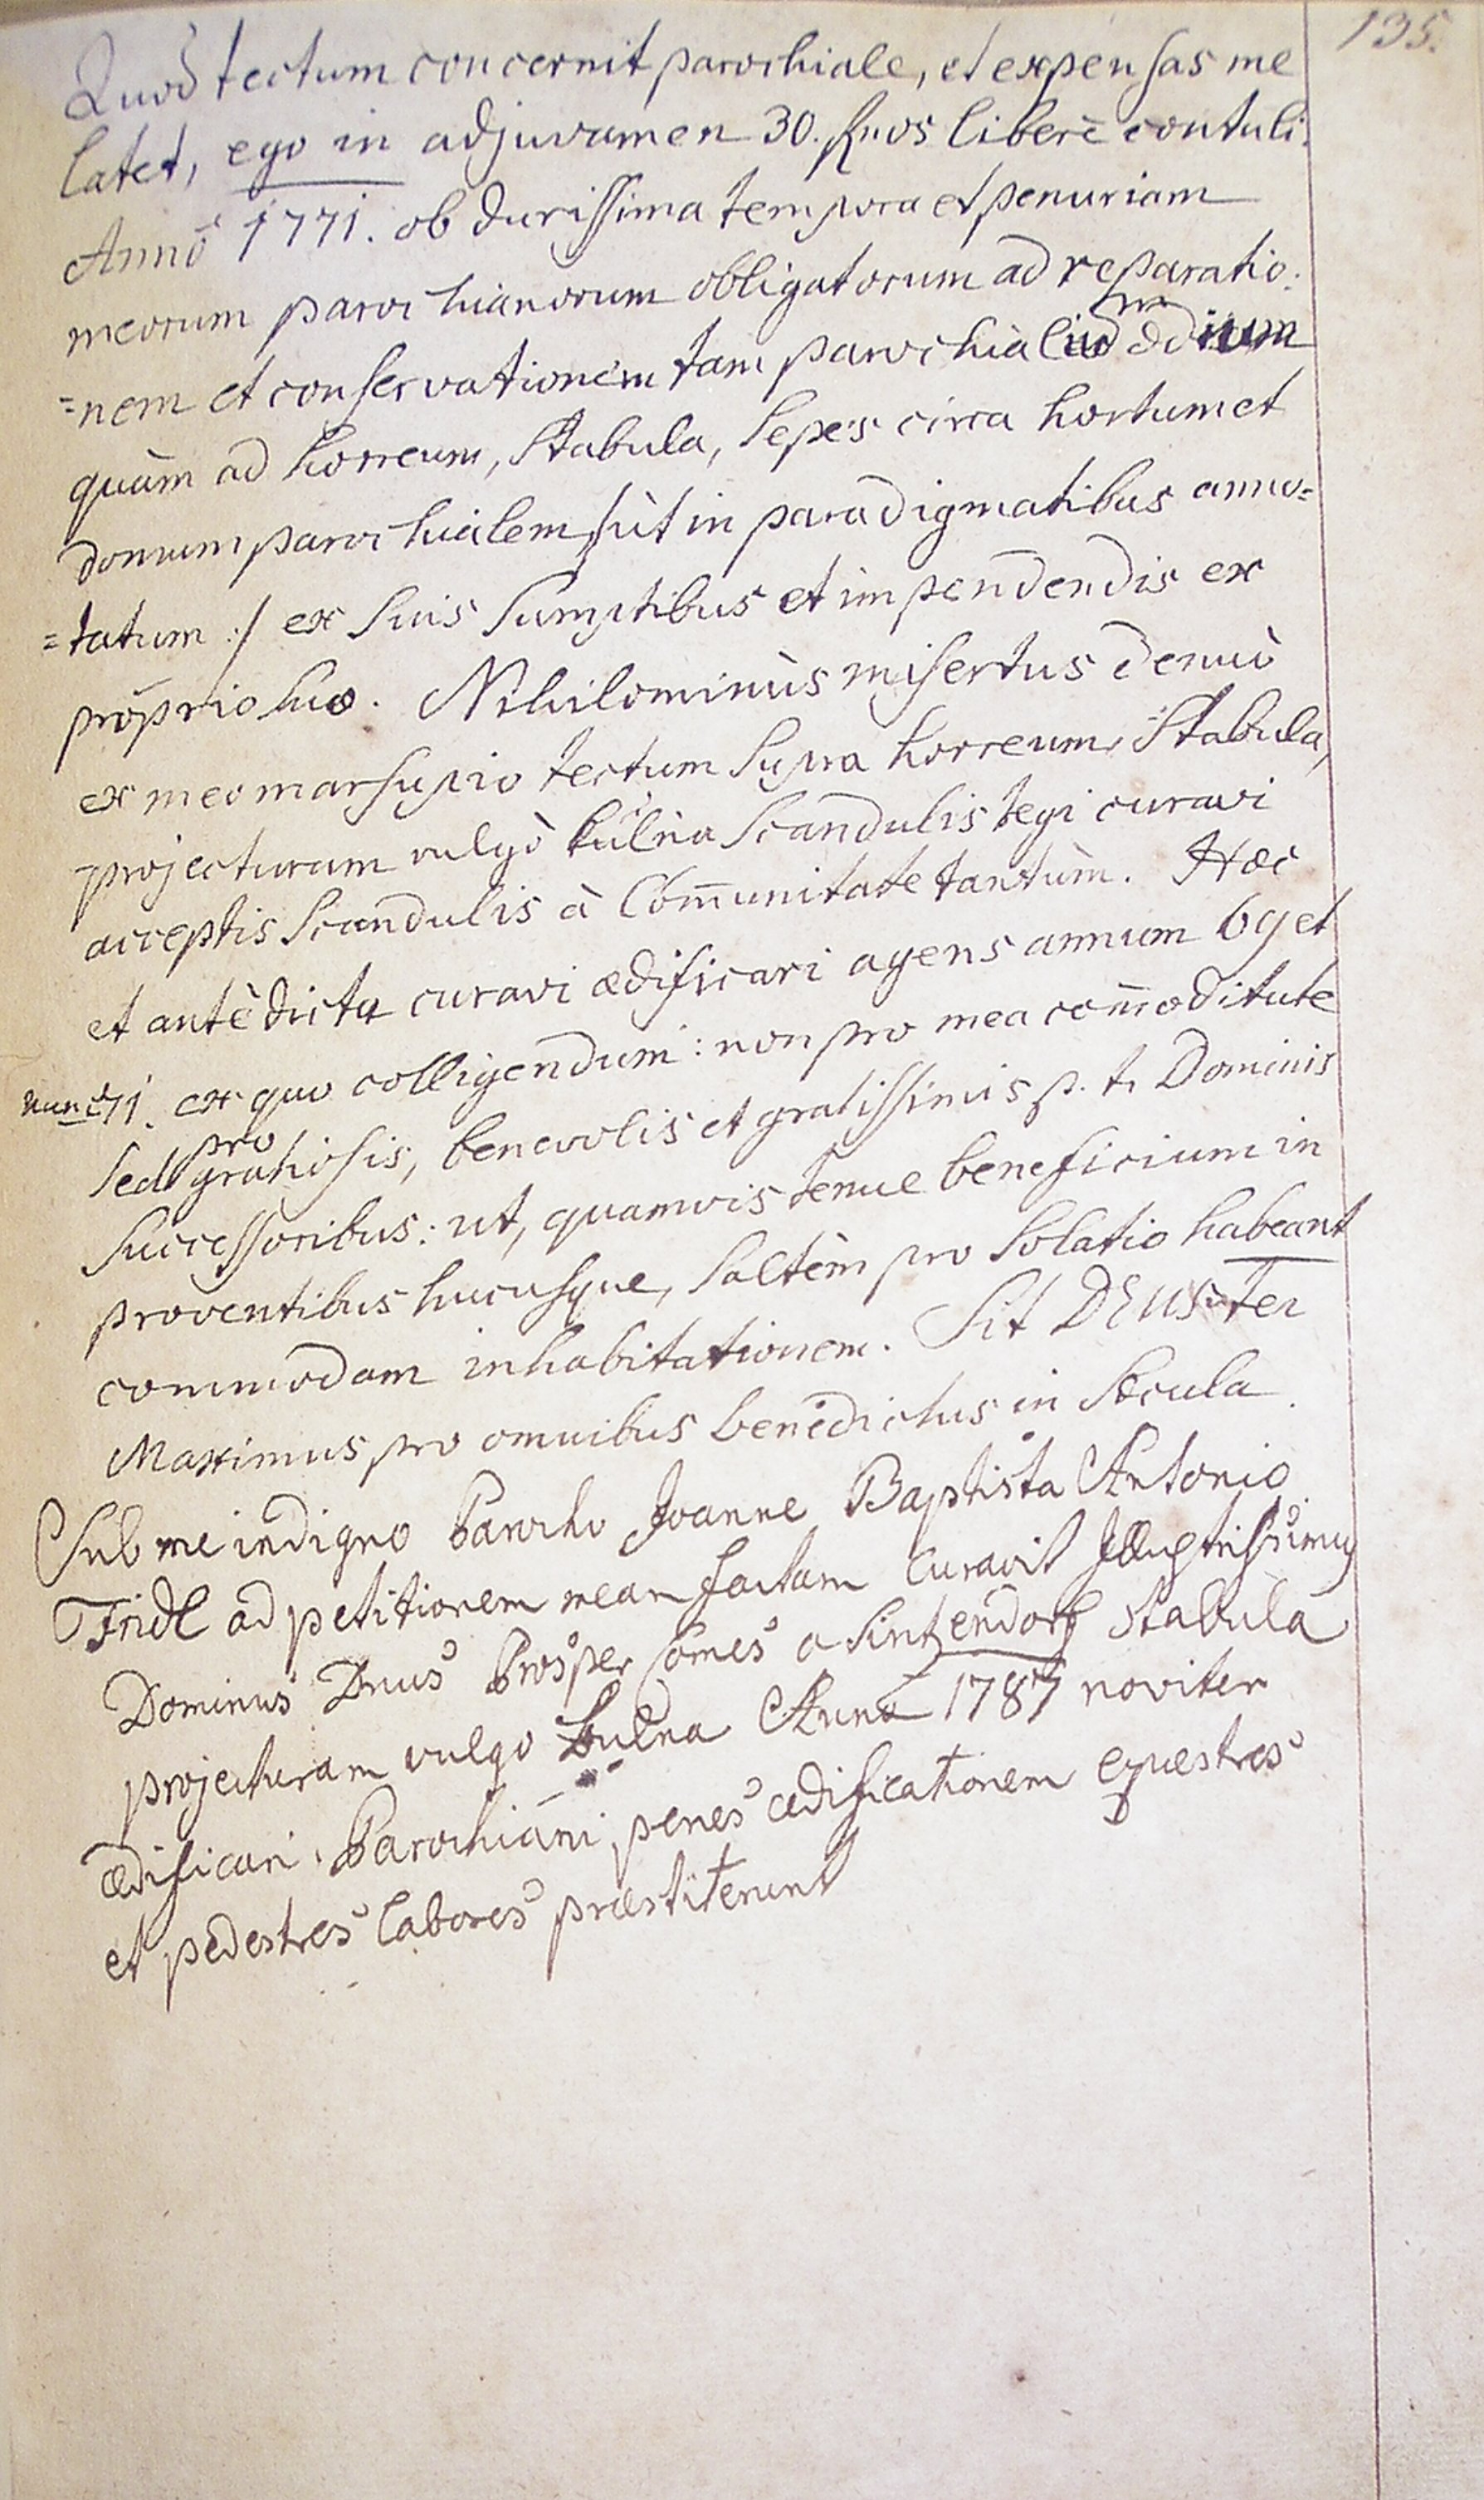 135.
Quod tectum concernit parochiale, et expensas me
latet, ego in adjuvamen 30. fl̅nos liberè contuli.
Annô 1771. ob durissima tempora et penuriam
meorum parochianorum obligatorum ad reparatio:
=nem et conservationem tam parochialium
quàm ad horreum, Stabula, Sepes circa hortum et
domum parochialem /: ùt in paradigmatibus anno=
=tatum :/ ex Suis Sumptibus et impendendis ex
proprio suo. Nihilominùs misertus denuò
ex meo marsupio tectum Supra horreum, Stabula,
projecturam vulgò kůlňa Scandulis tegi curavi
acceptis Scandulis à Com̅unitate tantùm. Hæc
et antè dicta curavi ædificari agens annum 69 et
nunc 71. ex quo colligendum: non pro mea com̅oditate
Sed pro gratiosis, benevolis et gratissimis p. t. Dominis
Successoribus: ut, quamvis tenue beneficium in
proventibus hucusque, Saltèm pro Solatio habeant
commodam inhabitationem. Sit DEUS ter
Maximus pro omnibus benedictus in Sæcula.
Sub me indigno Parocho Joanne Baptista Antonio
Fridl ad petitionem meam factam Curavit Illustrissimus
Dominus Dnus Prosper Comes a Sintzendorf Stabula
projecturam vulgo kulna Anno 1787 noviter
ædificari. Parochiani penes ædificationem equestres
et pedestres labores præstiterunt